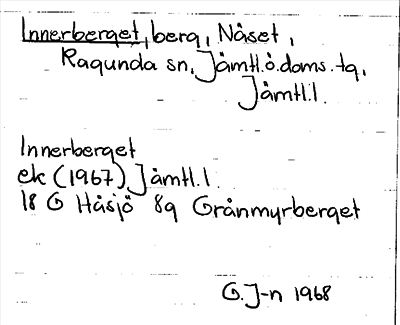 Innerberget, berg, Nåset,
Ragunda sn, Jämtl.ö.doms.tg,
Jämtl.l.
Innerberget
ek (1967) Jämtl.l.
18 G Håsjö 8g Grånmyrberget
G. J-n 1968